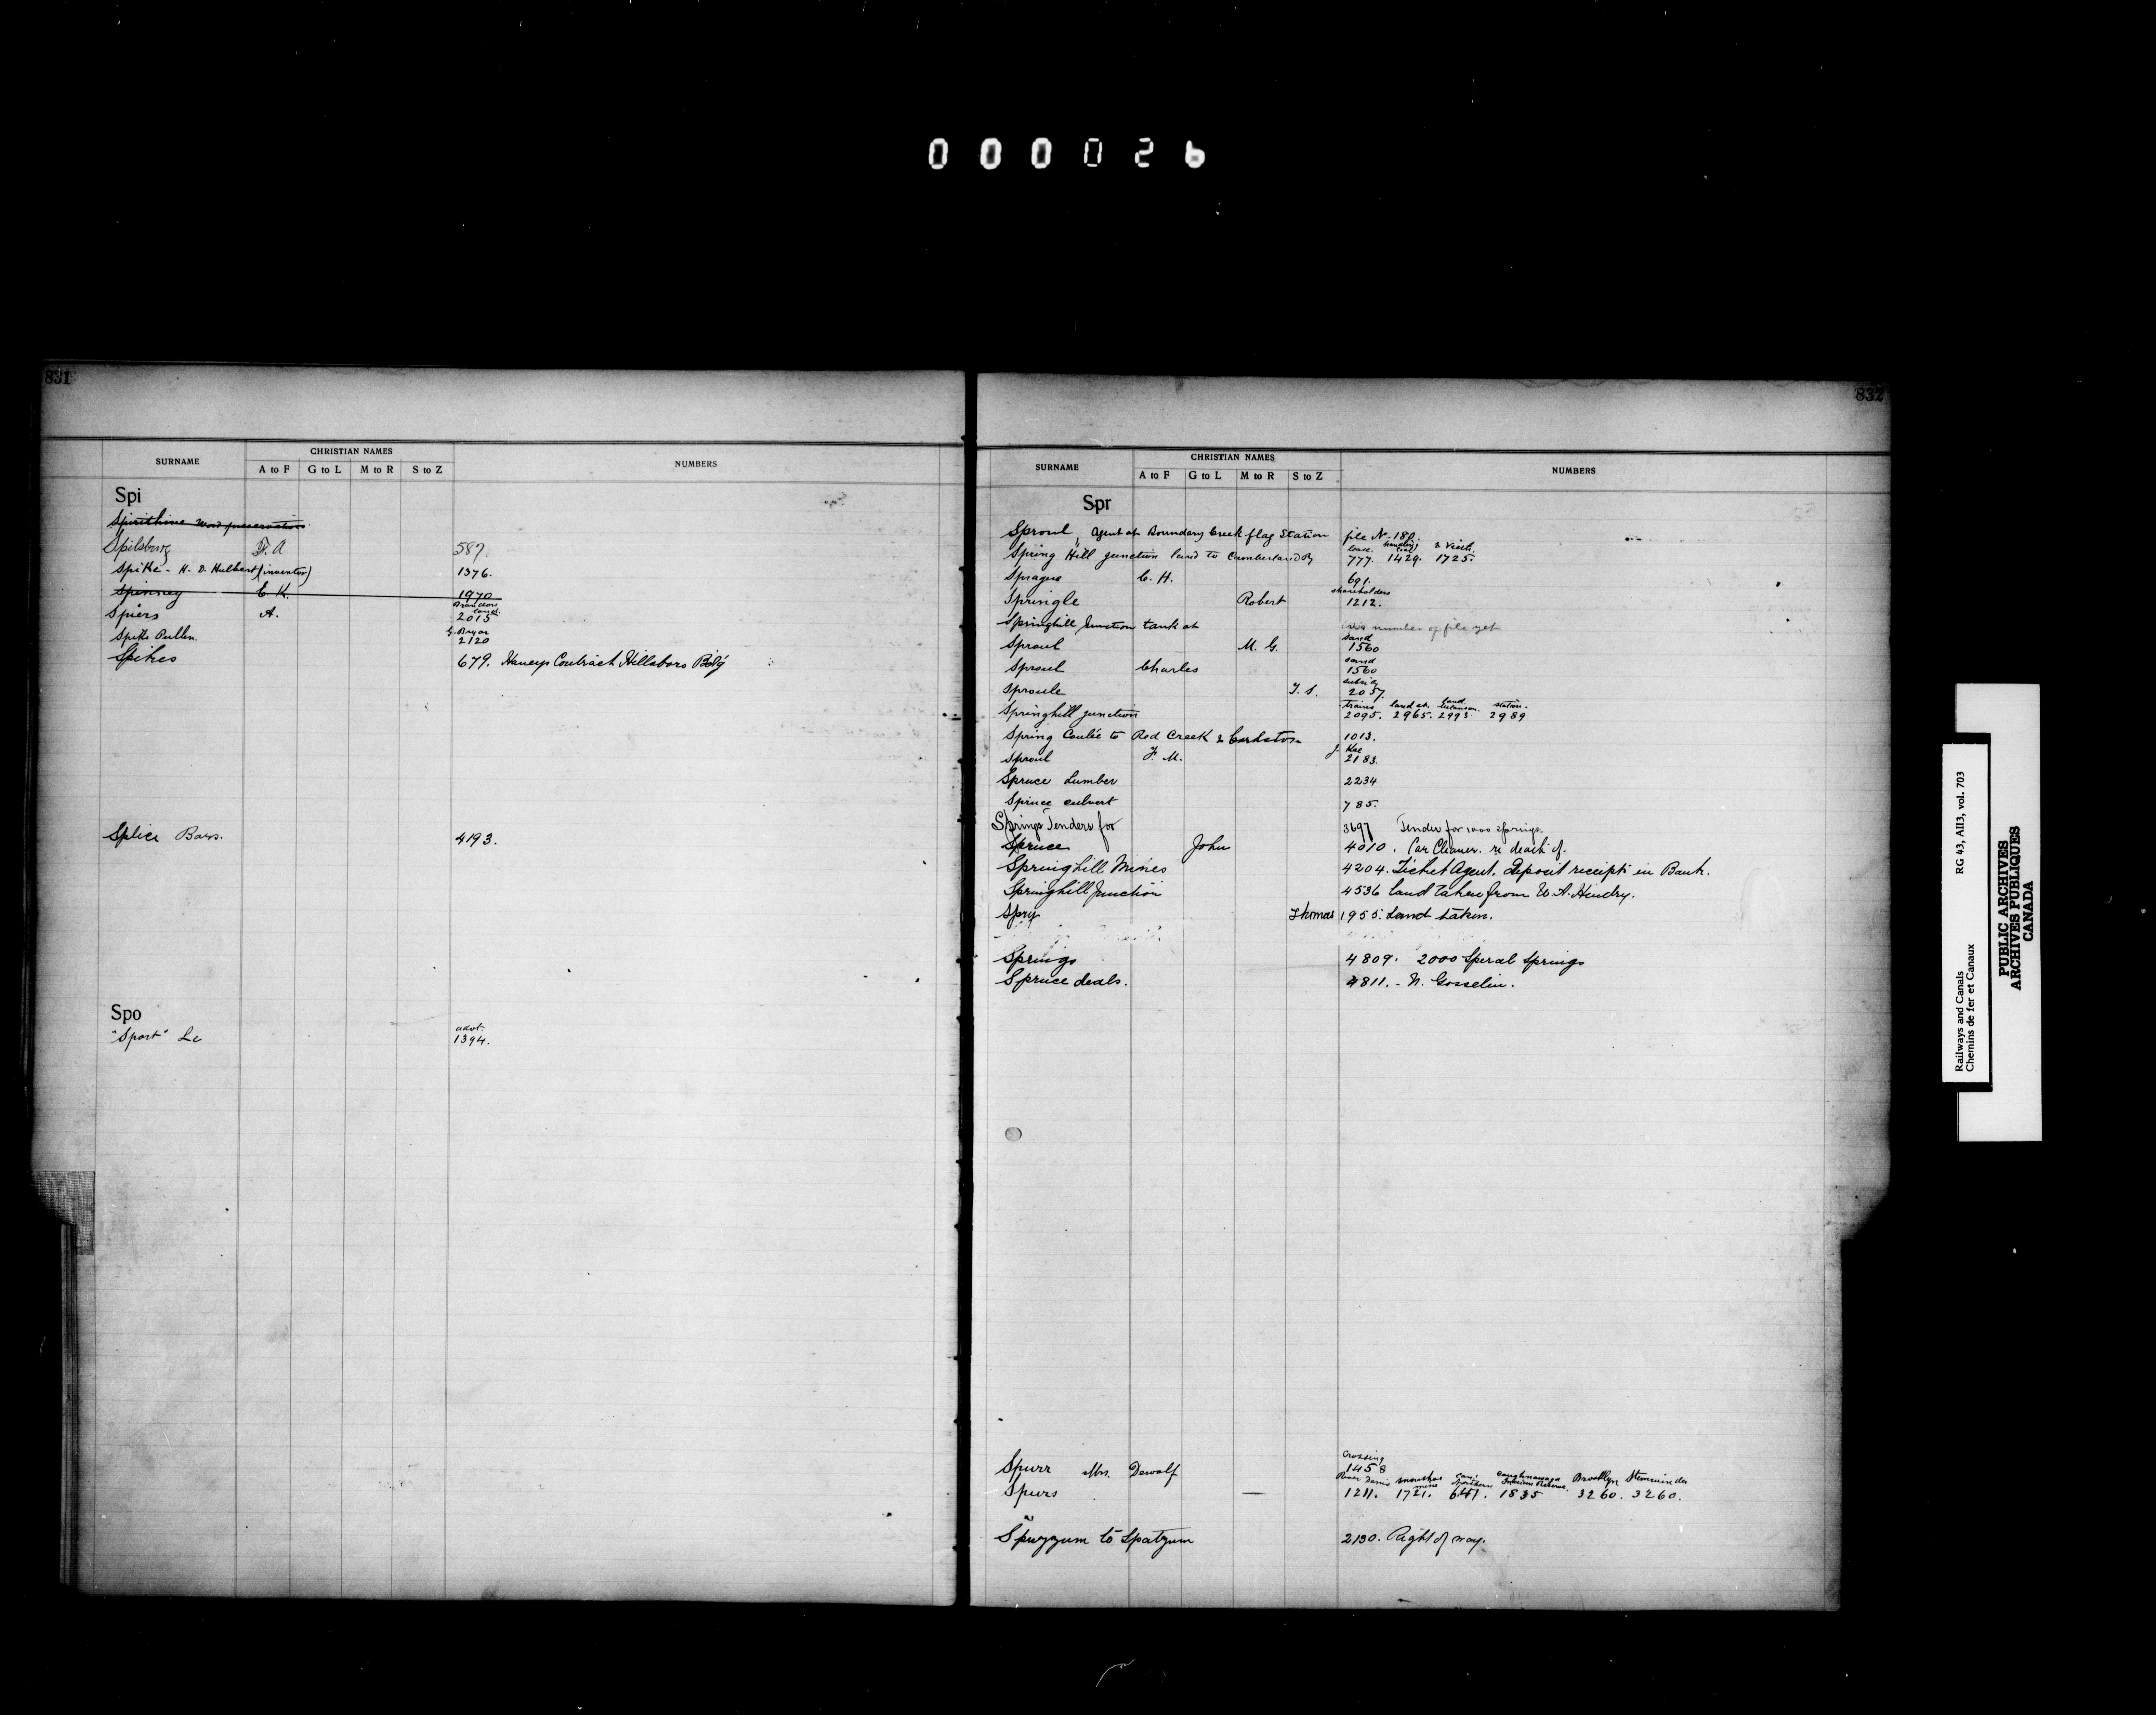 000026
831
SURNAME CHRISTIAN NAMES NUMBERS
A to F G to L M to R S to Z
Spi
Spirithine Wood preservation
Spilsbury F. A 587.
Spike - H. D. Hulbert (inventor) 1376.
Spinney E. K. 1970
Brandon land
Spiers A. 2015
G. Bryar
Spike Puller. 2120
Spikes 679. Haneys Contract Hillsboro Bldg
Splice Bars. 4193.
Spo
advt.
"Sport" Le 1394.
832
SURNAME CHRISTIAN NAMES NUMBERS
A to F G to L M to R S to Z
Spr
Sproul, Agent at Boundary Creek flag Station file No. 180.
lease
Spring Hill junction land to Cumberland Ry 777. 1429. 1725.
Sprague C. H. 691.
shareholders
Springle Robert 1212.
Springhill Junction tank at no number of file yet
sand
Sproul M. G. 1560
sand
Sproul Charles 1560
subsidy
Sproule T. S. 2057.
trains land at land station.
Springhill junction 2095. 2965. 2993. 2989
Spring Coulée to Red Creek & Cardston 1013.
Sproul F. M. 2183.
Spruce Lumber 2234
Spruce culvert 785.
Springs Tenders for 3697 Tender for 1000 springs.
Spruce John 4010. Car Cleaner. re death of.
Springhill Mines 4204. Ticket Agent. deposit receipts in Bank.
Springhill Junction 4536 Land taken from W. A. Hendry.
Spry Thomas 1955. Land taken.
Springs 4809. 2000 Speral Springs
Spruce deals. 4811. - N. Gosselin.
Crossing
Spurr Mrs. Dewolf 1458
River Denis snowshoe mine Can. Northern Caughnawaga Indian Reserve. Brooklyn Stemwinder
Spurs — 1211. 1721. 641. 1835 3260. 3260.
Spuzzum to Spatzum 2130. Right of way.
Railways and Canals RG 43, AII3, vol. 703
Chemins de fer et Canaux
PUBLIC ARCHIVES
ARCHIVES PUBLIQUES
CANADA